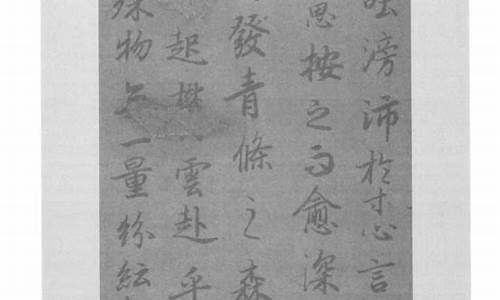 吐滂沛於寸心言
思按之而愈深
發青條之森
起欝雲赴乎
殊物无一量紛紜